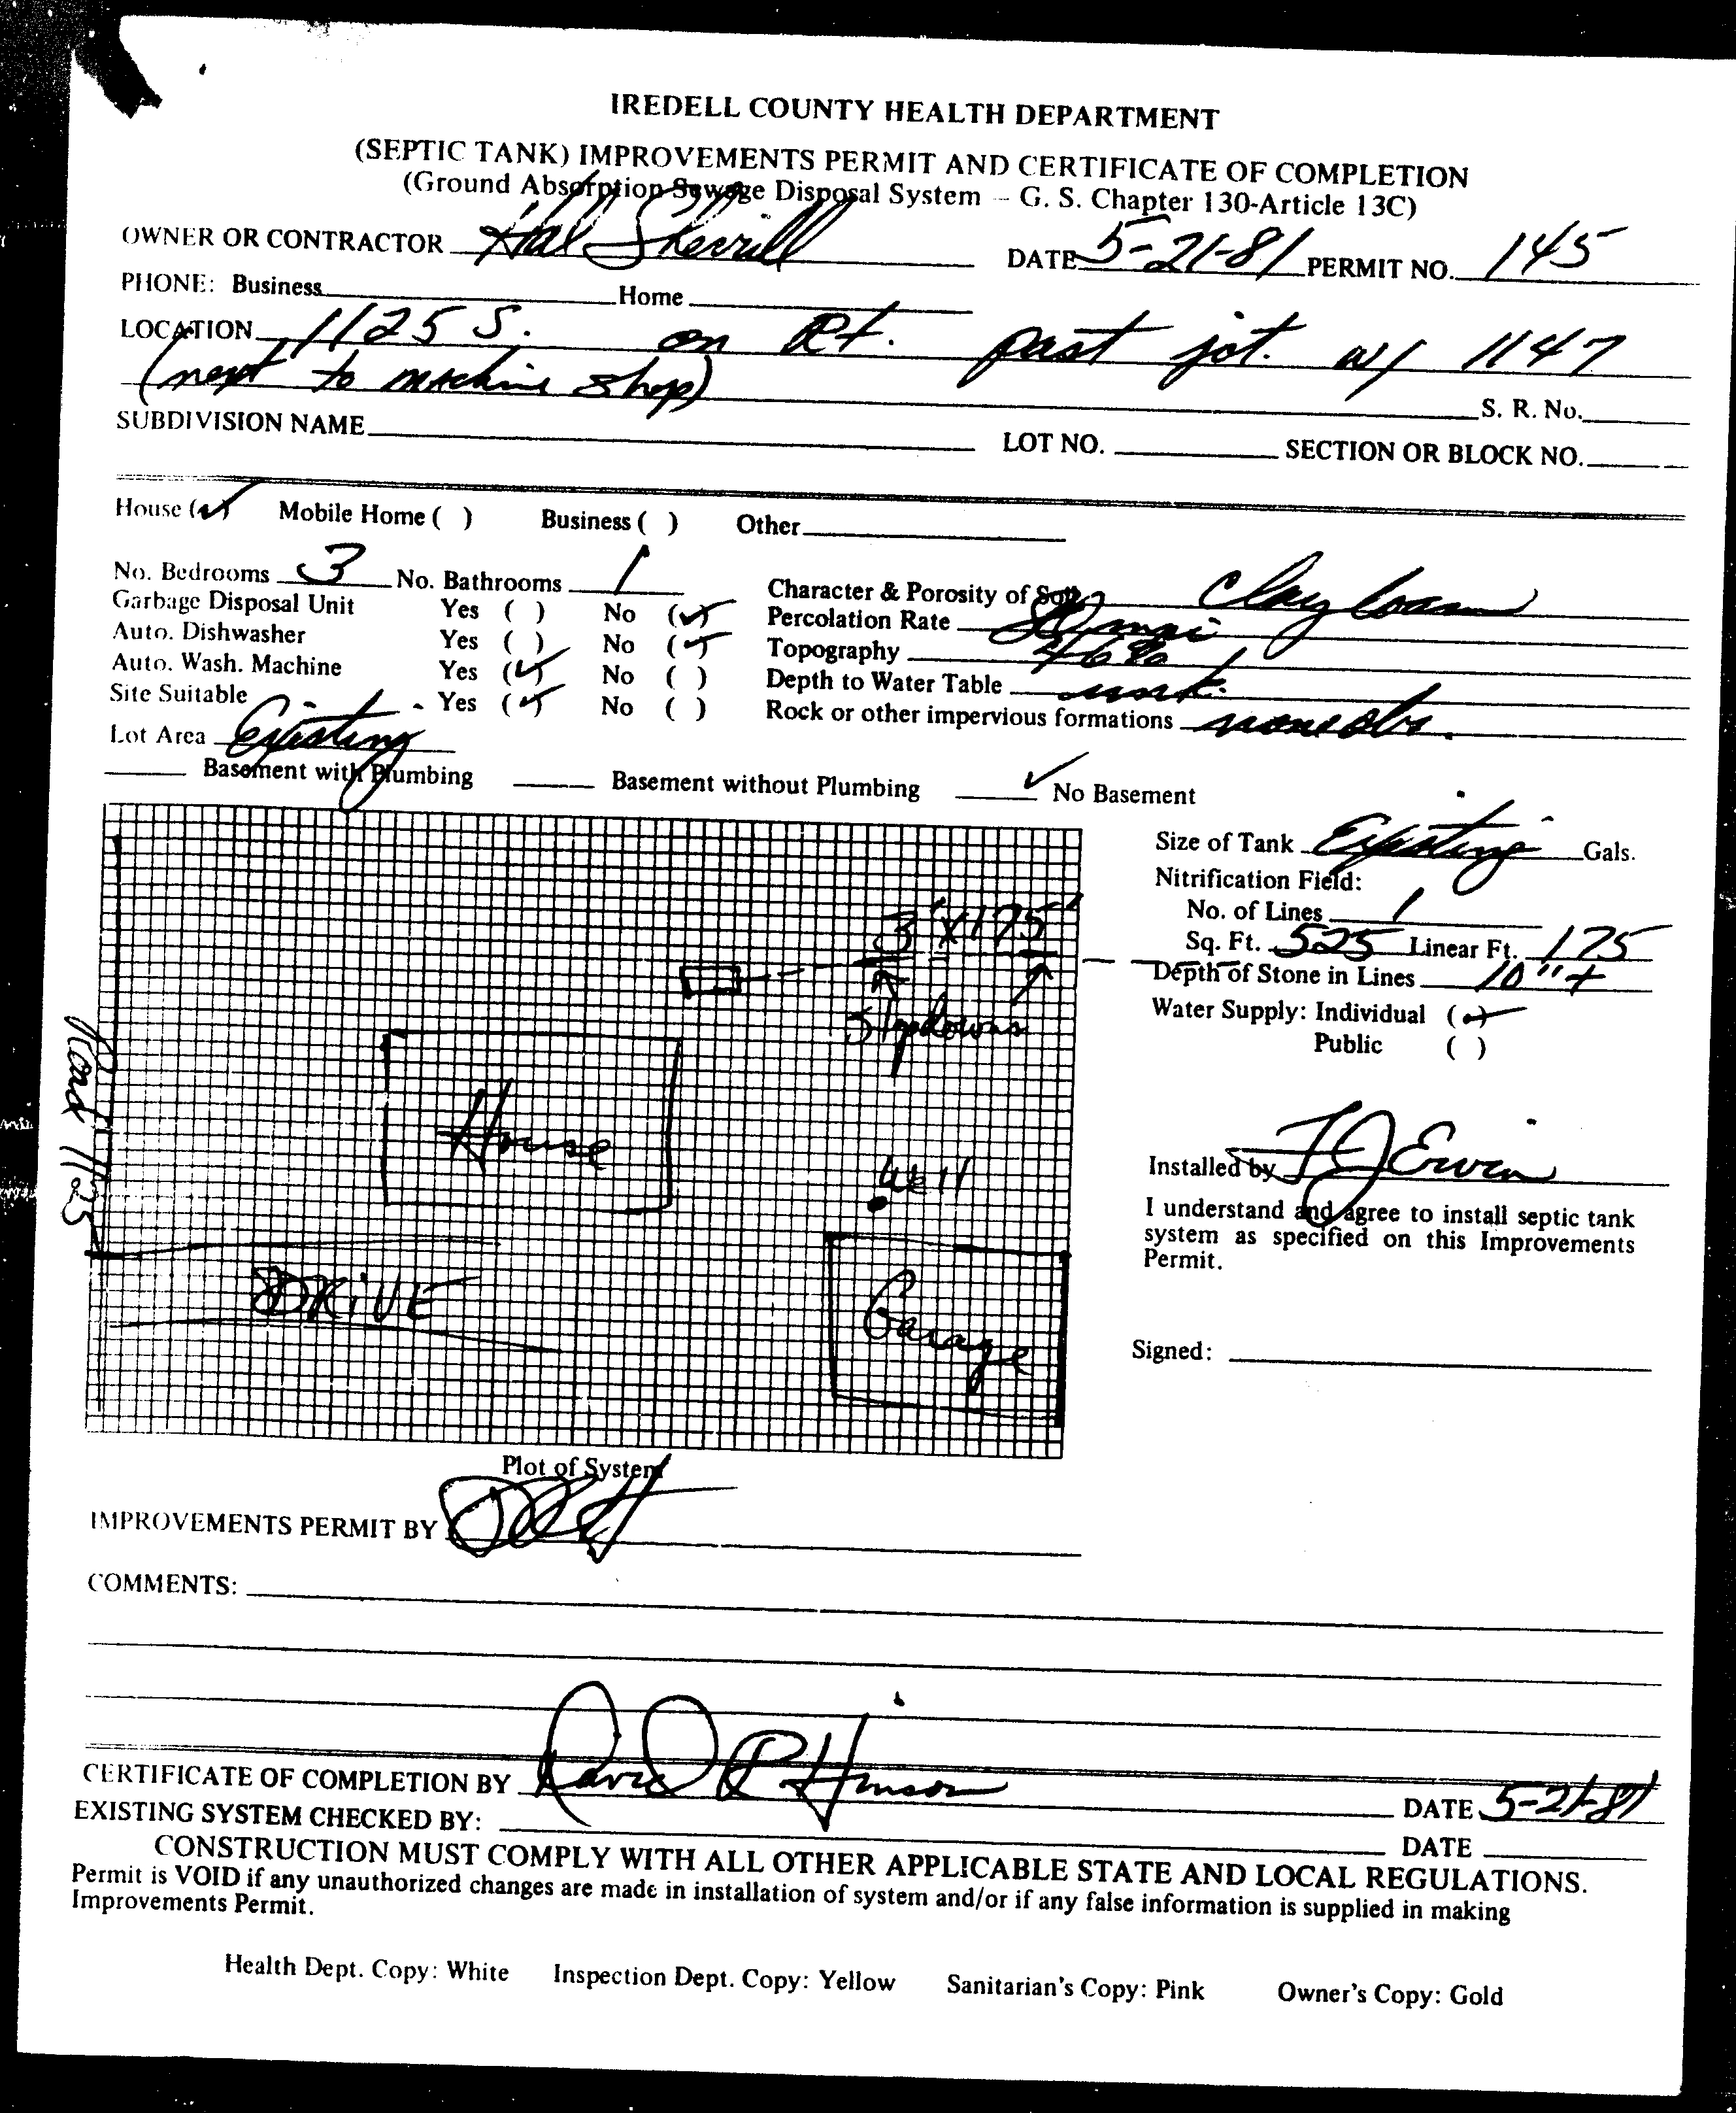 IREDELL COUNTY HEALTH DEPARTMENT
(SEPTIC TANK) IMPROVEMENTS PERMIT AND CERTIFICATE OF COMPLETION
(Ground Absorption Sewage Disposal System - G. S. Chapter 130-Article 13C)
OWNER OR CONTRACTOR Hal Sherrill DATE 5-21-81 PERMIT NO. 145
PHONE: Business Home
LOCATION 1125 S. on Rt. past jct. w/ 1147
(next to machine shop) S. R. No.
SUBDIVISION NAME LOT NO. SECTION OR BLOCK NO.
House (✓) Mobile Home ( ) Business ( ) Other
No. Bedrooms 3 No. Bathrooms 1 Character & Porosity of Soil Clay loam
Garbage Disposal Unit Yes ( ) No (✓) Percolation Rate
Auto. Dishwasher Yes ( ) No (✓) Topography
Auto. Wash. Machine Yes (✓) No ( ) Depth to Water Table unk.
Site Suitable Yes (✓) No ( ) Rock or other impervious formations none obs.
Lot Area Existing
Basement with Plumbing Basement without Plumbing ✓ No Basement
Size of Tank Existing Gals.
Nitrification Field:
No. of Lines 1
Sq. Ft. 525 Linear Ft. 175
Depth of Stone in Lines 10"+
Water Supply: Individual (✓)
Public ( )
3'x175'
Stepdowns
House
Well
Road 1125
DRIVE
Garage
Installed by T J Ervin
I understand and agree to install septic tank
system as specified on this Improvements
Permit.
Signed:
Plot of System
IMPROVEMENTS PERMIT BY
COMMENTS:
CERTIFICATE OF COMPLETION BY David R Hinson DATE 5-21-81
EXISTING SYSTEM CHECKED BY: DATE
CONSTRUCTION MUST COMPLY WITH ALL OTHER APPLICABLE STATE AND LOCAL REGULATIONS.
Permit is VOID if any unauthorized changes are made in installation of system and/or if any false information is supplied in making
Improvements Permit.
Health Dept. Copy: White Inspection Dept. Copy: Yellow Sanitarian's Copy: Pink Owner's Copy: Gold